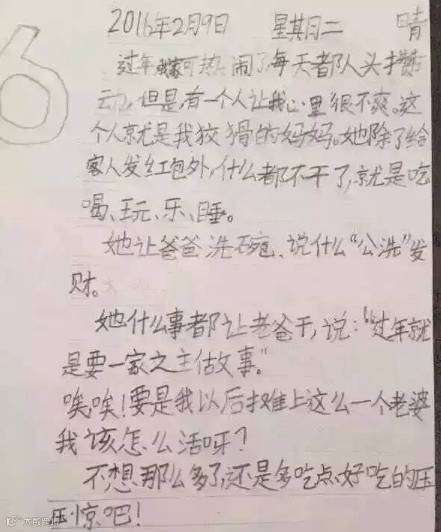 6
2016年2月9日 星期二 晴
过年我家可热闹了,每天都队人头攒
动,但是,有一个人让我心里很不爽。这
个人就是我狡猾的妈妈。她除了给
客人发红包外,什么都不干了,就是吃
喝、玩、乐、睡。
她让爸爸洗碗、说什么“公洗”发
财。
她什么事都让老爸干,说:“过年就
是要一家之主做故事。”
唉唉!要是我以后摊上这么一个老婆
我该怎么活呀?
不想那么多了,还是多吃点好吃的压
压惊吧!